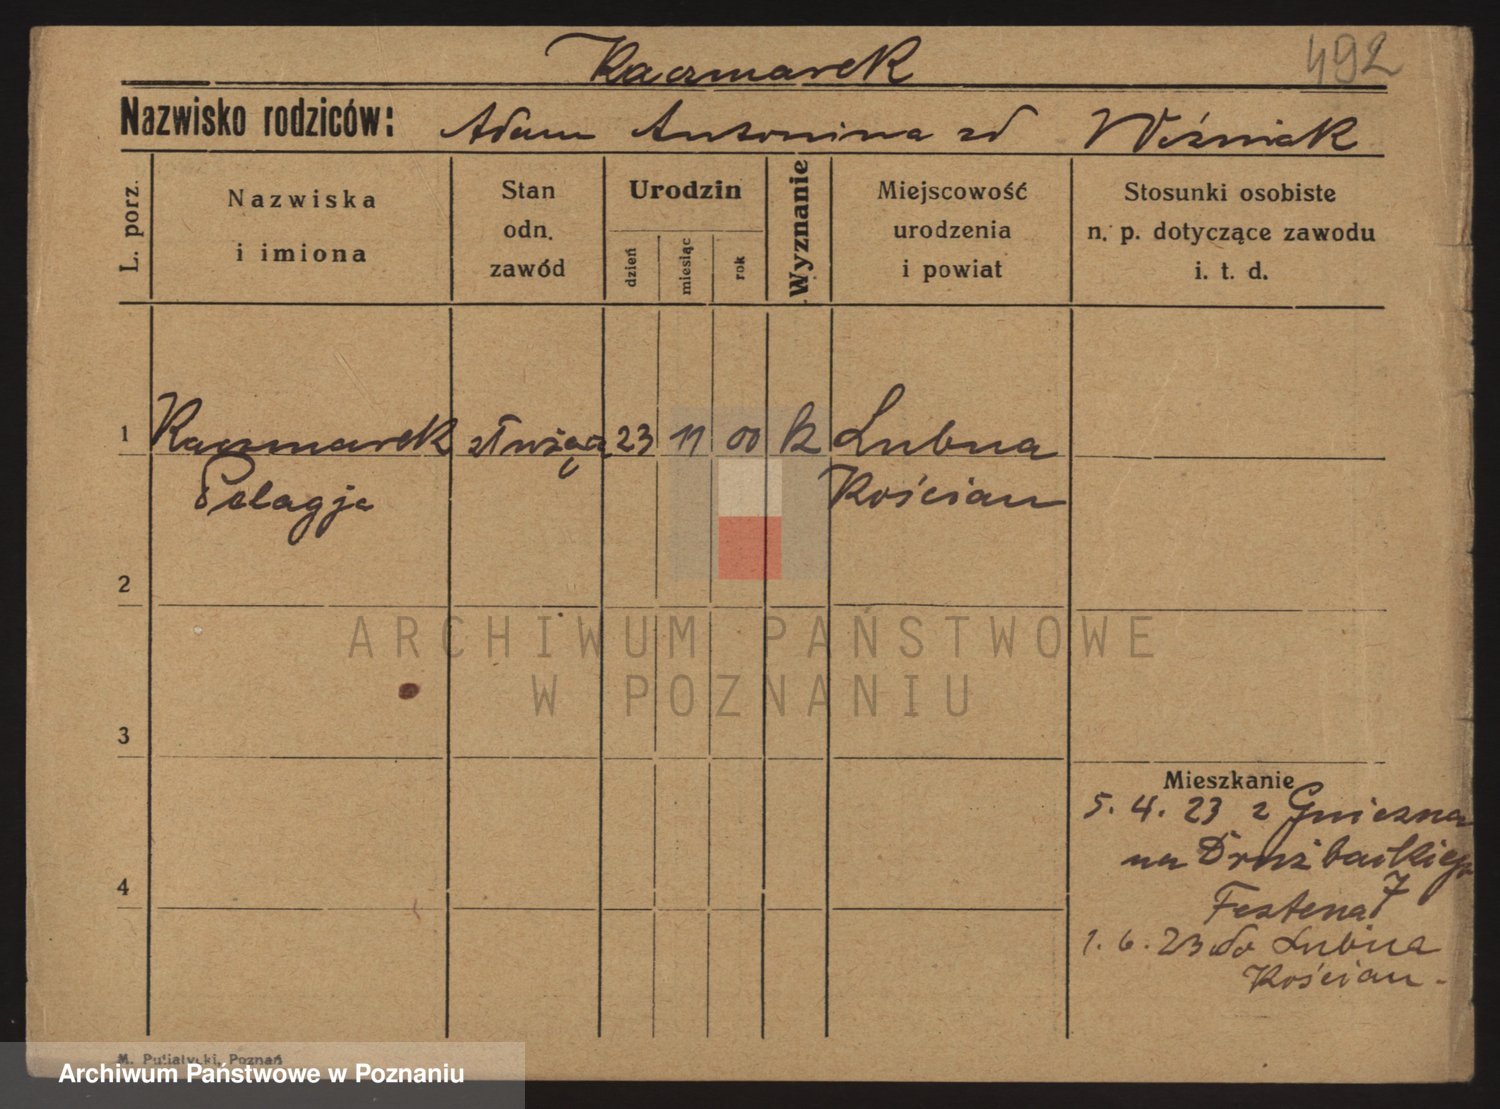 Kaczmarek
492
Nazwisko rodziców: Adam Antonina zd Woźniak
L. porz.
Nazwiska
i imiona
Stan
odn.
zawód
Urodzin
dzień
miesiąc
rok
Wyznanie
Miejscowość
urodzenia
i powiat
Stosunki osobiste
n. p. dotyczące zawodu
i. t. d.
1 Kaczmarek służąca 23 11 00 k Lubna
Pelagja Kościan
2
ARCHIWUM PAŃSTWOWE
W POZNANIU
3
Mieszkanie
5. 4. 23 z Gniezna
na Drużbackiego
7
1. 6. 23 do Lubna
Kościan.
4
M. Putiatycki, Poznań
Archiwum Państwowe w Poznaniu